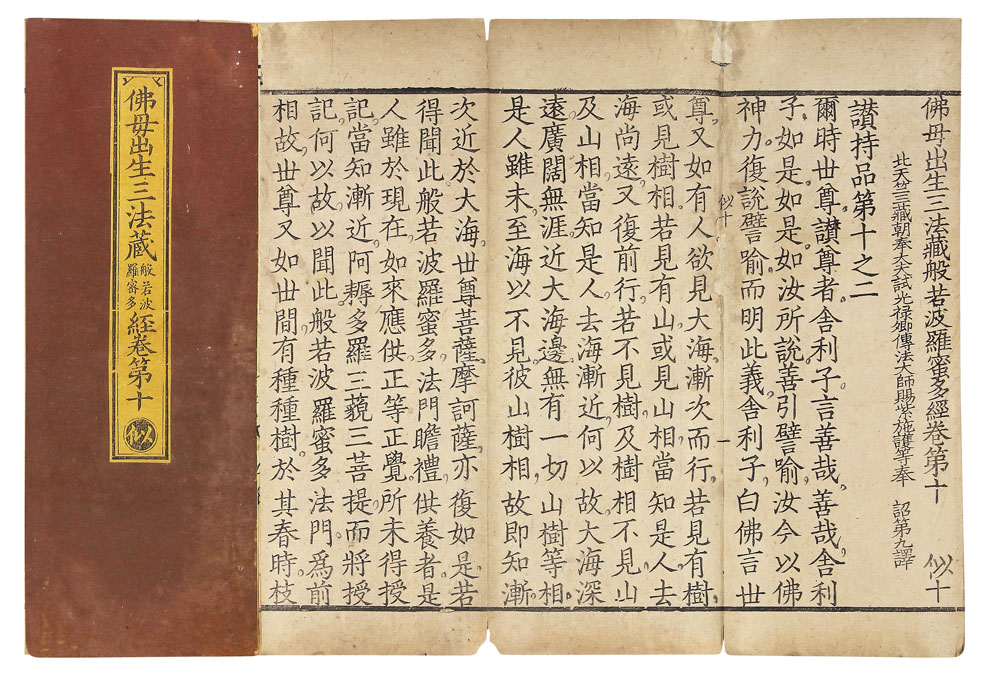 佛母出生三法藏般若波羅蜜多經卷第十 似十
北天竺三藏朝奉大夫試光禄卿傳法大師賜紫施護等奉 詔第九譯
讃持品第十之二
爾時世尊讃尊者舍利子言善哉善哉舍利
子如是如是如汝所說善引譬喻汝今以佛
神力復說譬喻而明此義舍利子白佛言世
似十 一
尊又如有人欲見大海漸次而行若見有樹
或見樹相若見有山或見山相當知是人去
海尚遠又復前行若不見樹及樹相不見山
及山相當知是人去海漸近何以故大海深
遠廣闊無涯近大海邊無有一切山樹等相
是人雖未至海以不見彼山樹相故即知漸
次近於大海世尊菩薩摩訶薩亦復如是若
得聞此般若波羅蜜多法門瞻禮供養者是
人雖於現在如來應供正等正覺所未得授
記當知漸近阿耨多羅三藐三菩提而將授
記何以故以聞此般若波羅蜜多法門爲前
相故世尊又如世間有種種樹於其春時枝
佛母出生三法藏般若波羅密多経卷第十 似